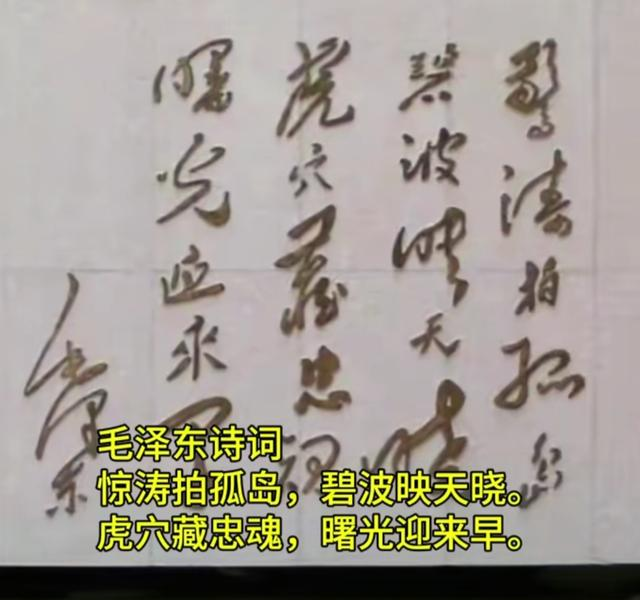 驚濤拍孤島
碧波映天曉
虎穴藏忠魂
曙光迎來早
毛澤東
毛泽东诗词
惊涛拍孤岛，碧波映天晓。
虎穴藏忠魂，曙光迎来早。